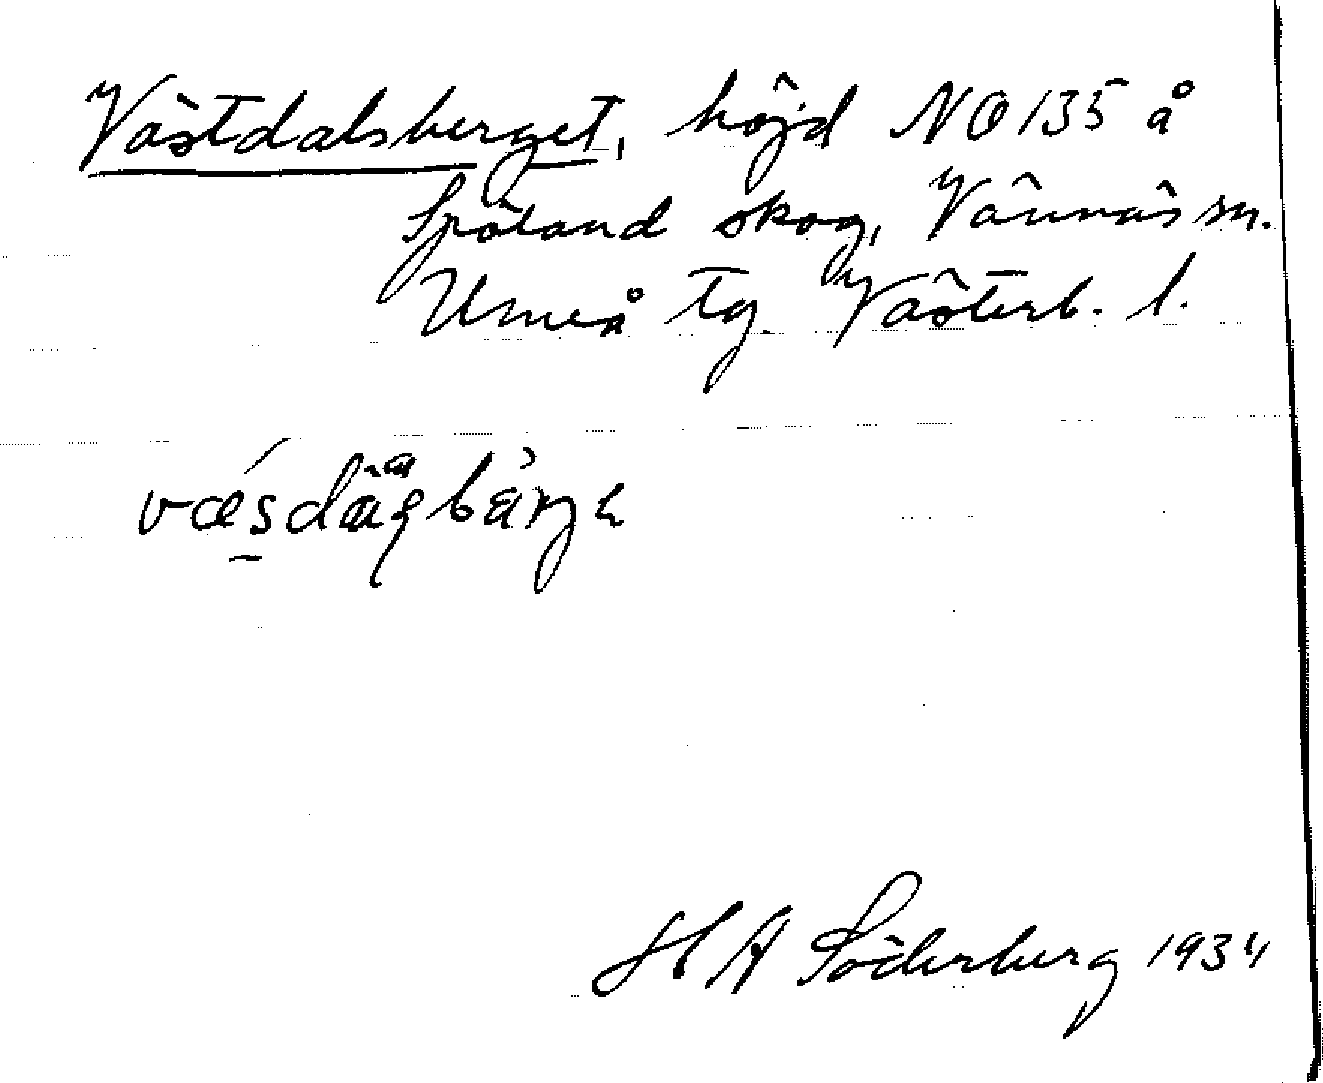 Västdalsberget, höjd NO 135 å
Spöland skog, Vännäs sn.
Umeå tg. Västerb. l.
H A Söderberg 1934